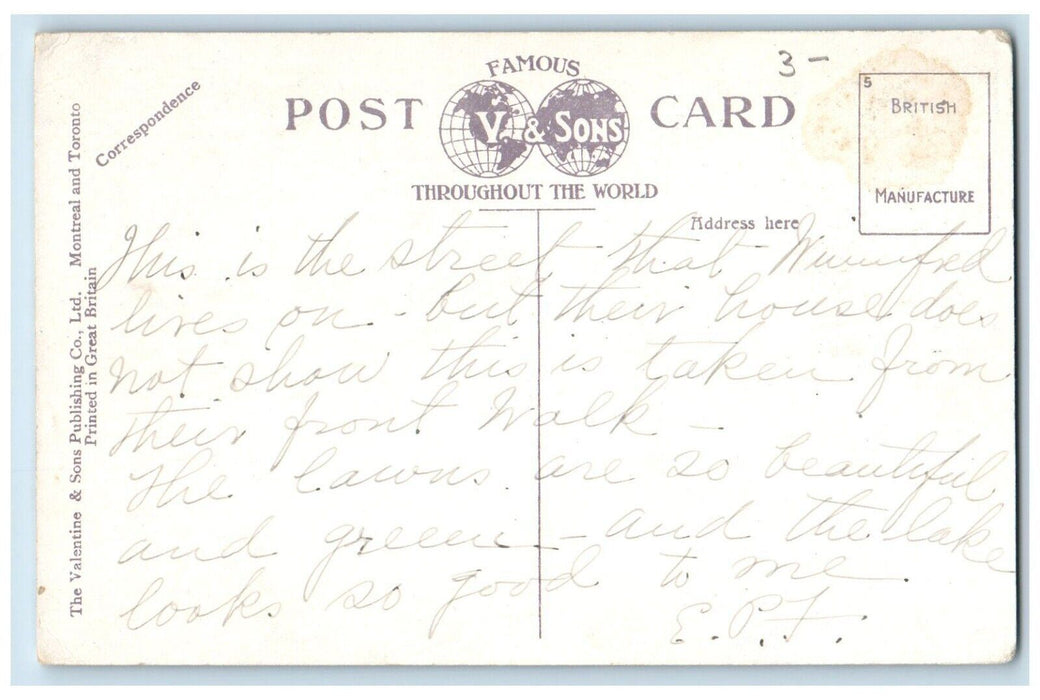 3-
FAMOUS
POST CARD
V. & SONS
THROUGHOUT THE WORLD
Correspondence
Address here
5
BRITISH
MANUFACTURE
The Valentine & Sons Publishing Co., Ltd. Montreal and Toronto
Printed in Great Britain
This is the street that Winnifred
lives on - but their house does
not show this is taken from
their front walk -
The lawns are so beautiful
and green - and the lake
looks so good to me.
E.P.F.